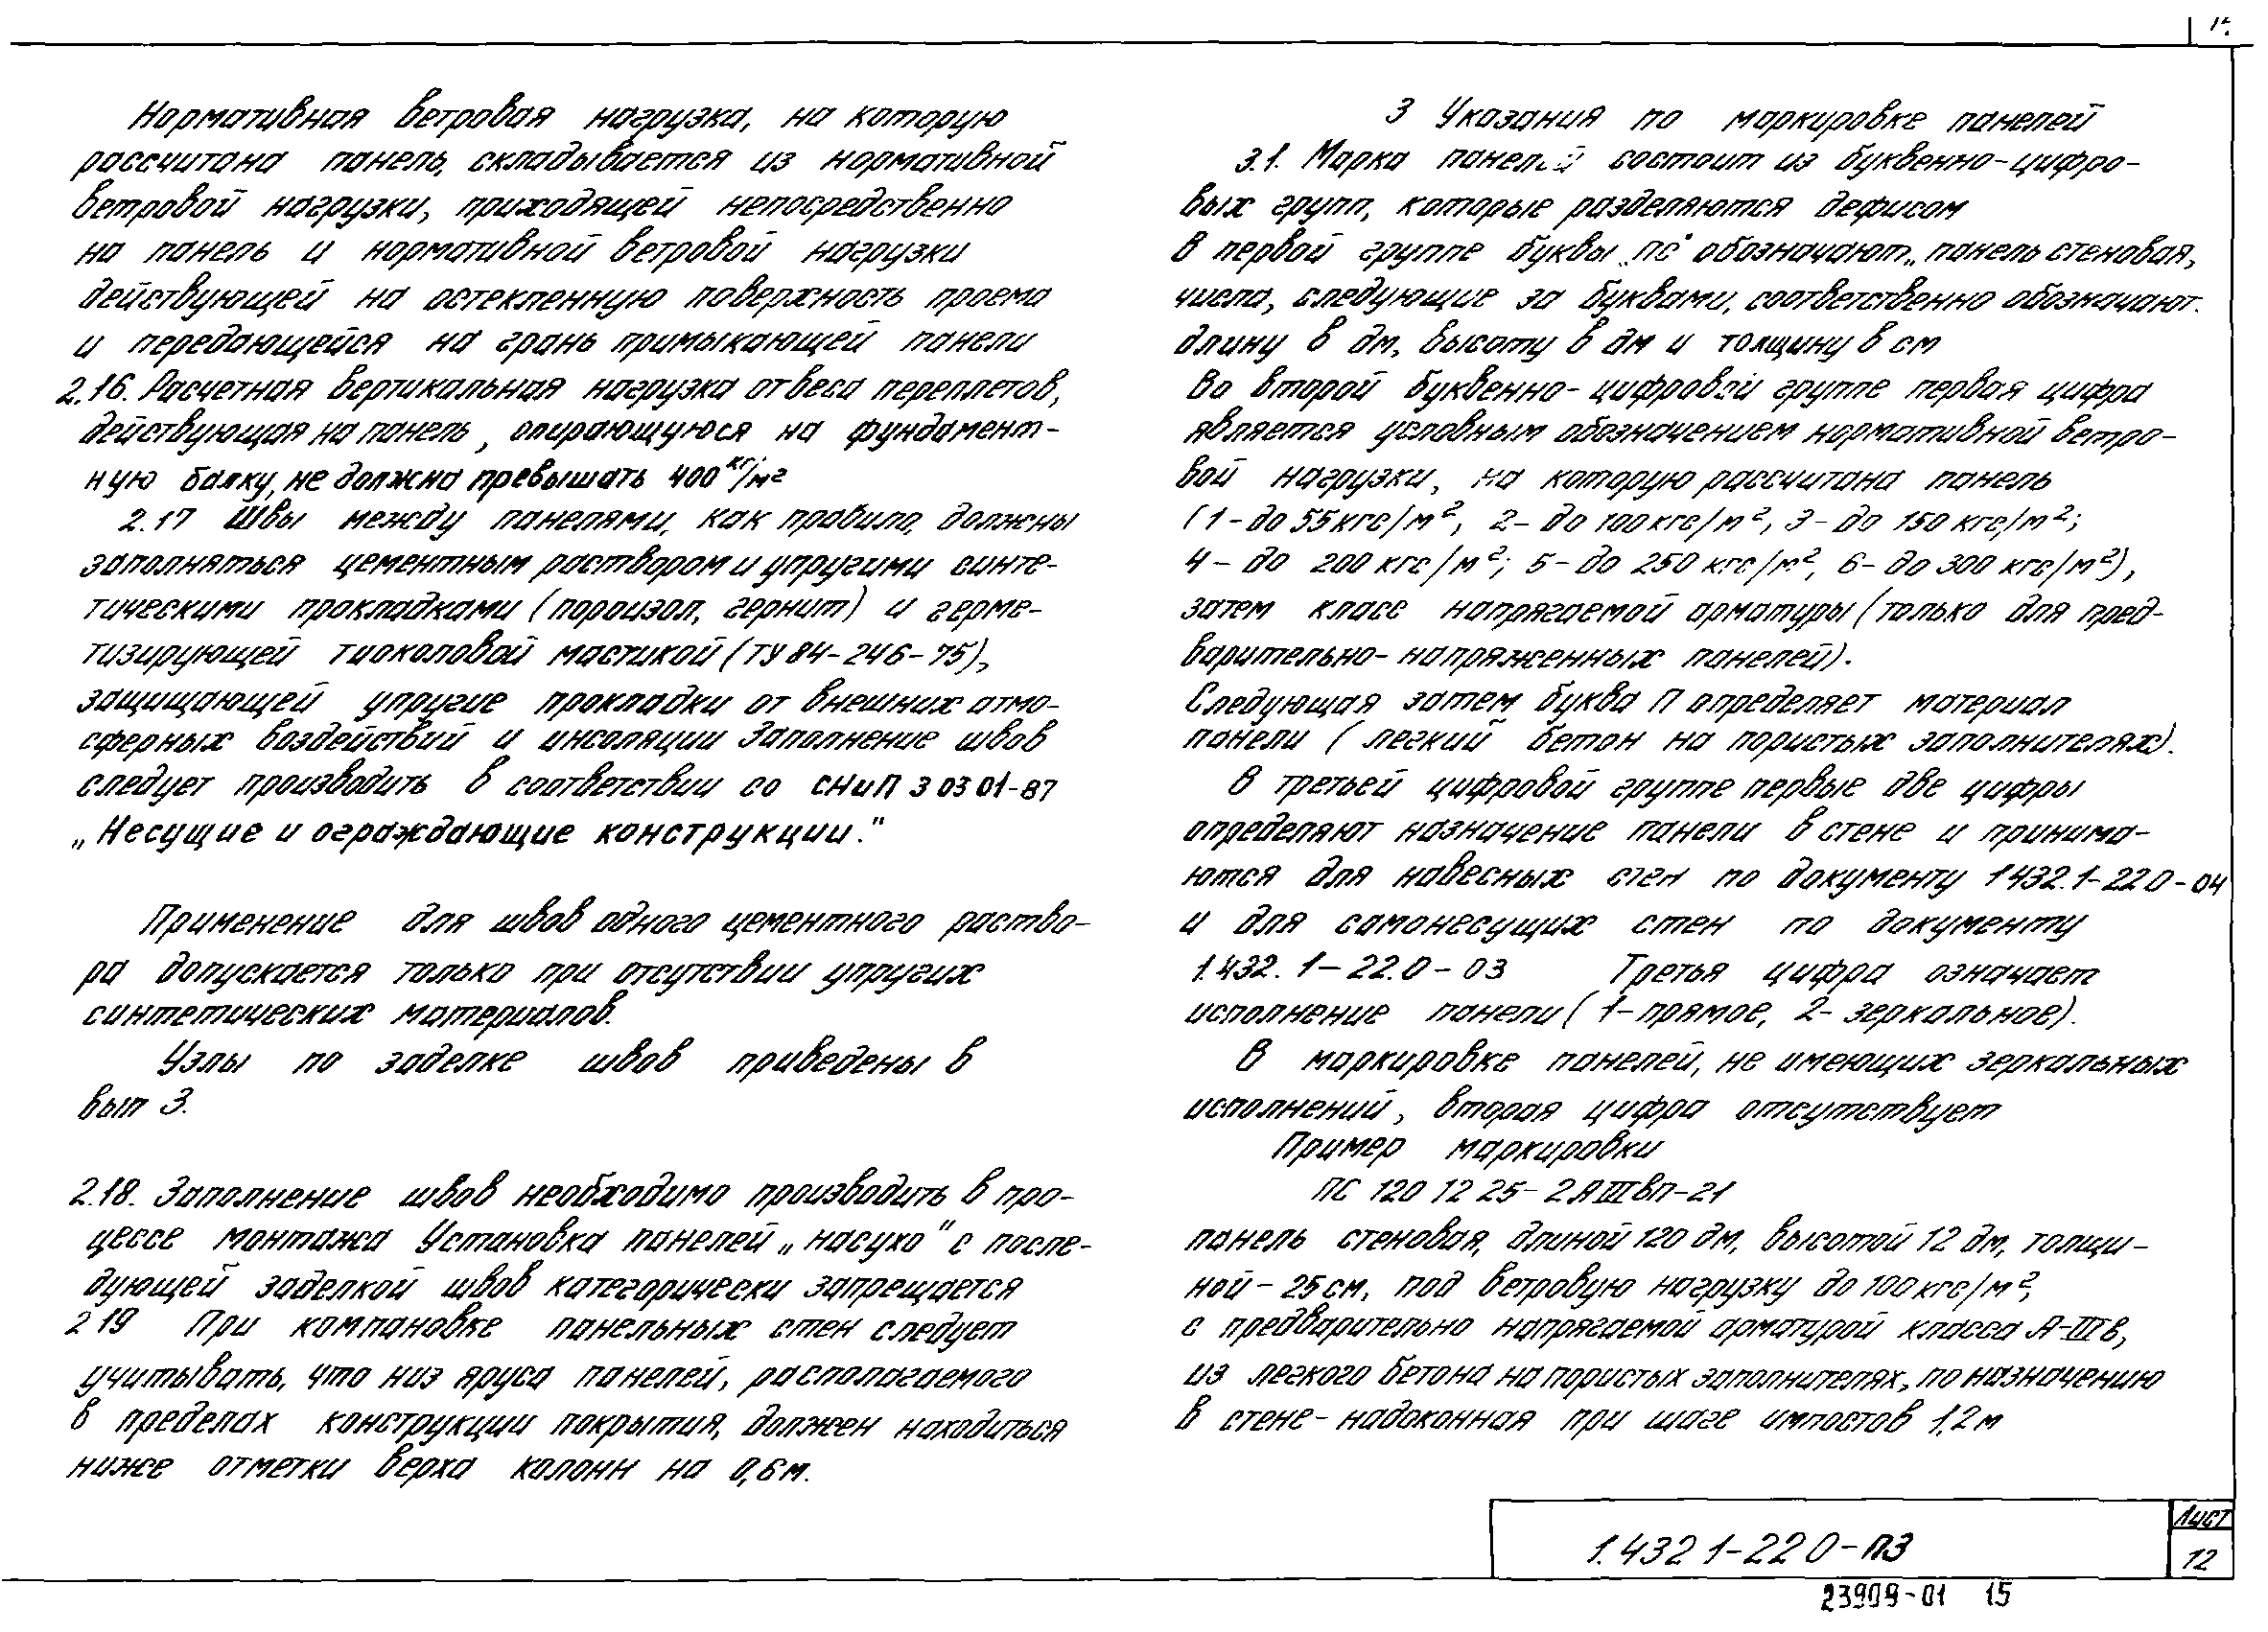 Нормативная ветровая нагрузка, на которую
рассчитана панель, складывается из нормативной
ветровой нагрузки, приходящей непосредственно
на панель и нормативной ветровой нагрузки
действующей на остекленную поверхность проема
и передающейся на грань примыкающей панели
2.16. Расчетная вертикальная нагрузка от веса переплетов,
действующая на панель, опирающуюся на фундамент-
ную балку, не должна превышать 400 кг/м²
2.17 Швы между панелями, как правило, должны
заполняться цементным раствором и упругими синте-
тическими прокладками (пороизол, гернит) и герме-
тизирующей тиоколовой мастикой (ТУ 84-246-75),
защищающей упругие прокладки от внешних атмо-
сферных воздействий и инсоляции Заполнение швов
следует производить в соответствии со СНиП 3 03 01-87
„Несущие и ограждающие конструкции."
Применение для швов одного цементного раство-
ра допускается только при отсутствии упругих
синтетических материалов.
Узлы по заделке швов приведены в
вып 3.
2.18. Заполнение швов необходимо производить в про-
цессе монтажа Установка панелей „насухо" с после-
дующей заделкой швов категорически запрещается
2 19 При компановке панельных стен следует
учитывать, что низ яруса панелей, располагаемого
в пределах конструкции покрытия, должен находиться
ниже отметки верха колонн на 0,6 м.
3 Указания по маркировке панелей
3.1. Марка панелей состоит из буквенно-цифро-
вых групп, которые разделяются дефисом
В первой группе буквы „ПС" обозначают „панель стеновая,
числа, следующие за буквами, соответственно обозначают.
длину в дм, высоту в дм и толщину в см
Во второй буквенно-цифровой группе первая цифра
является условным обозначением нормативной ветро-
вой нагрузки, на которую рассчитана панель
(1-до 55 кгс/м², 2- до 100 кгс/м², 3- до 150 кгс/м²;
4- до 200 кгс/м²; 5- до 250 кгс/м², 6- до 300 кгс/м²),
затем класс напрягаемой арматуры (только для пред-
варительно-напряженных панелей).
Следующая затем буква П определяет материал
панели (легкий бетон на пористых заполнителях).
В третьей цифровой группе первые две цифры
определяют назначение панели в стене и принима-
ются для навесных стен по документу 1 432.1-22 0-04
и для самонесущих стен по документу
1.432. 1-22.0-03 Третья цифра означает
исполнение панели (1-прямое, 2- зеркальное).
В маркировке панелей, не имеющих зеркальных
исполнений, вторая цифра отсутствует
Пример маркировки
ПС 120 12 25- 2 АIIIвП-21
панель стеновая, длиной 120 дм, высотой 12 дм, толщи-
ной- 25 см, под ветровую нагрузку до 100 кгс/м²,
с предварительно напрягаемой арматурой класса А-IIIв,
из легкого бетона на пористых заполнителях, по назначению
в стене-надоконная при шаге импостов 1,2 м
1.432 1-22 0-ПЗ
Лист
12
23909-01 15